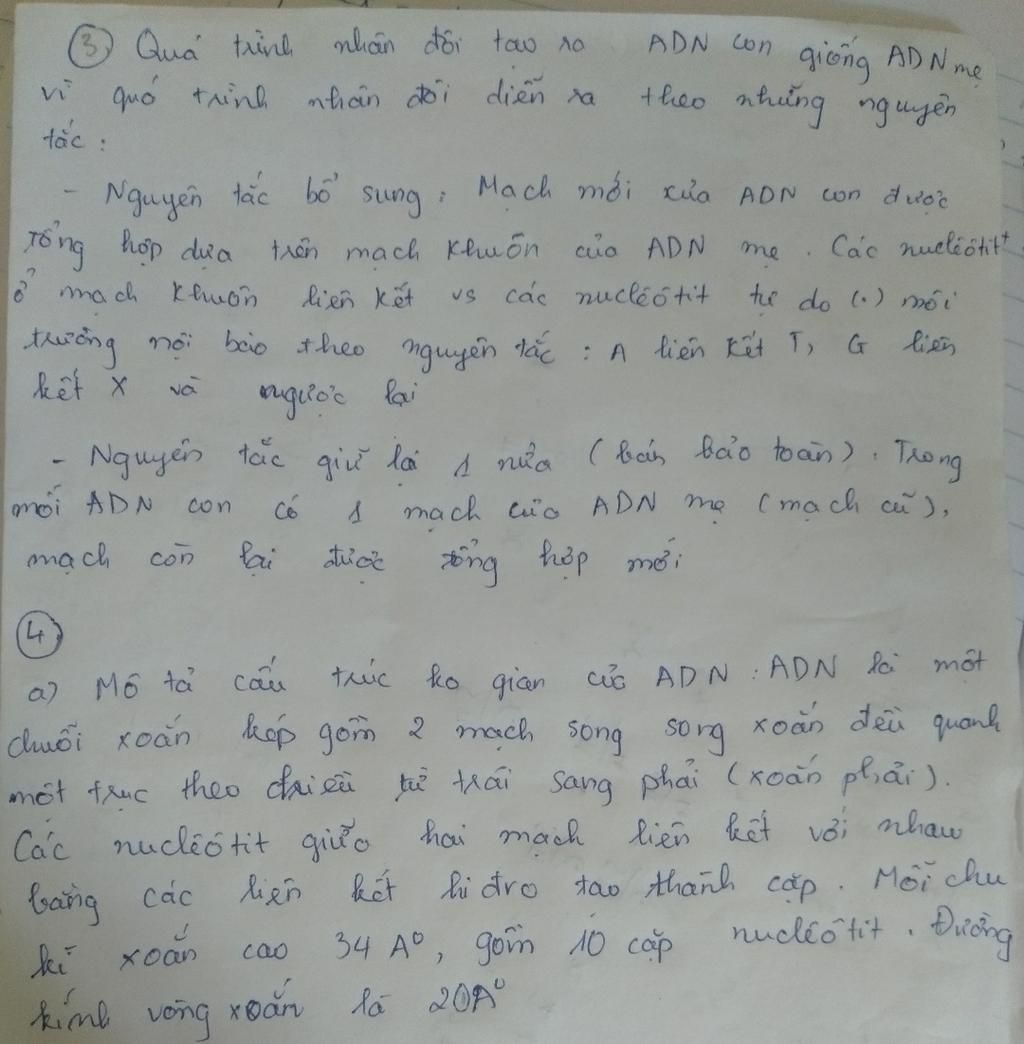 ③ Quá trình nhân đôi tạo ra ADN con giống ADN mẹ
vì quá trình nhân đôi diễn ra theo những nguyên
tắc :
- Nguyên tắc bổ sung : Mạch mới xủa ADN con được
tổng hợp dựa trên mạch khuôn của ADN mẹ . Các nuclêôtit
ở mạch khuôn liên kết vs các nuclêôtit tự do (.) môi
trường nội bào theo nguyên tắc : A liên kết T, G liên
kết X và ngược lại
- Nguyên tắc giữ lại 1 nửa (bán bảo toàn) . Trong
mỗi ADN con có 1 mạch của ADN mẹ (mạch cũ),
mạch còn lại được tổng hợp mới
④
a) Mô tả cấu trúc ko gian của ADN : ADN là một
chuỗi xoắn kép gồm 2 mạch song song xoắn đều quanh
một trục theo chiều từ trái sang phải (xoắn phải).
Các nuclêôtit giữa hai mạch liên kết với nhau
bằng các liên kết hiđro tạo thành cặp . Mỗi chu
kì xoắn cao 34 A⁰, gồm 10 cặp nuclêôtit . Đường
kính vòng xoắn là 20A⁰